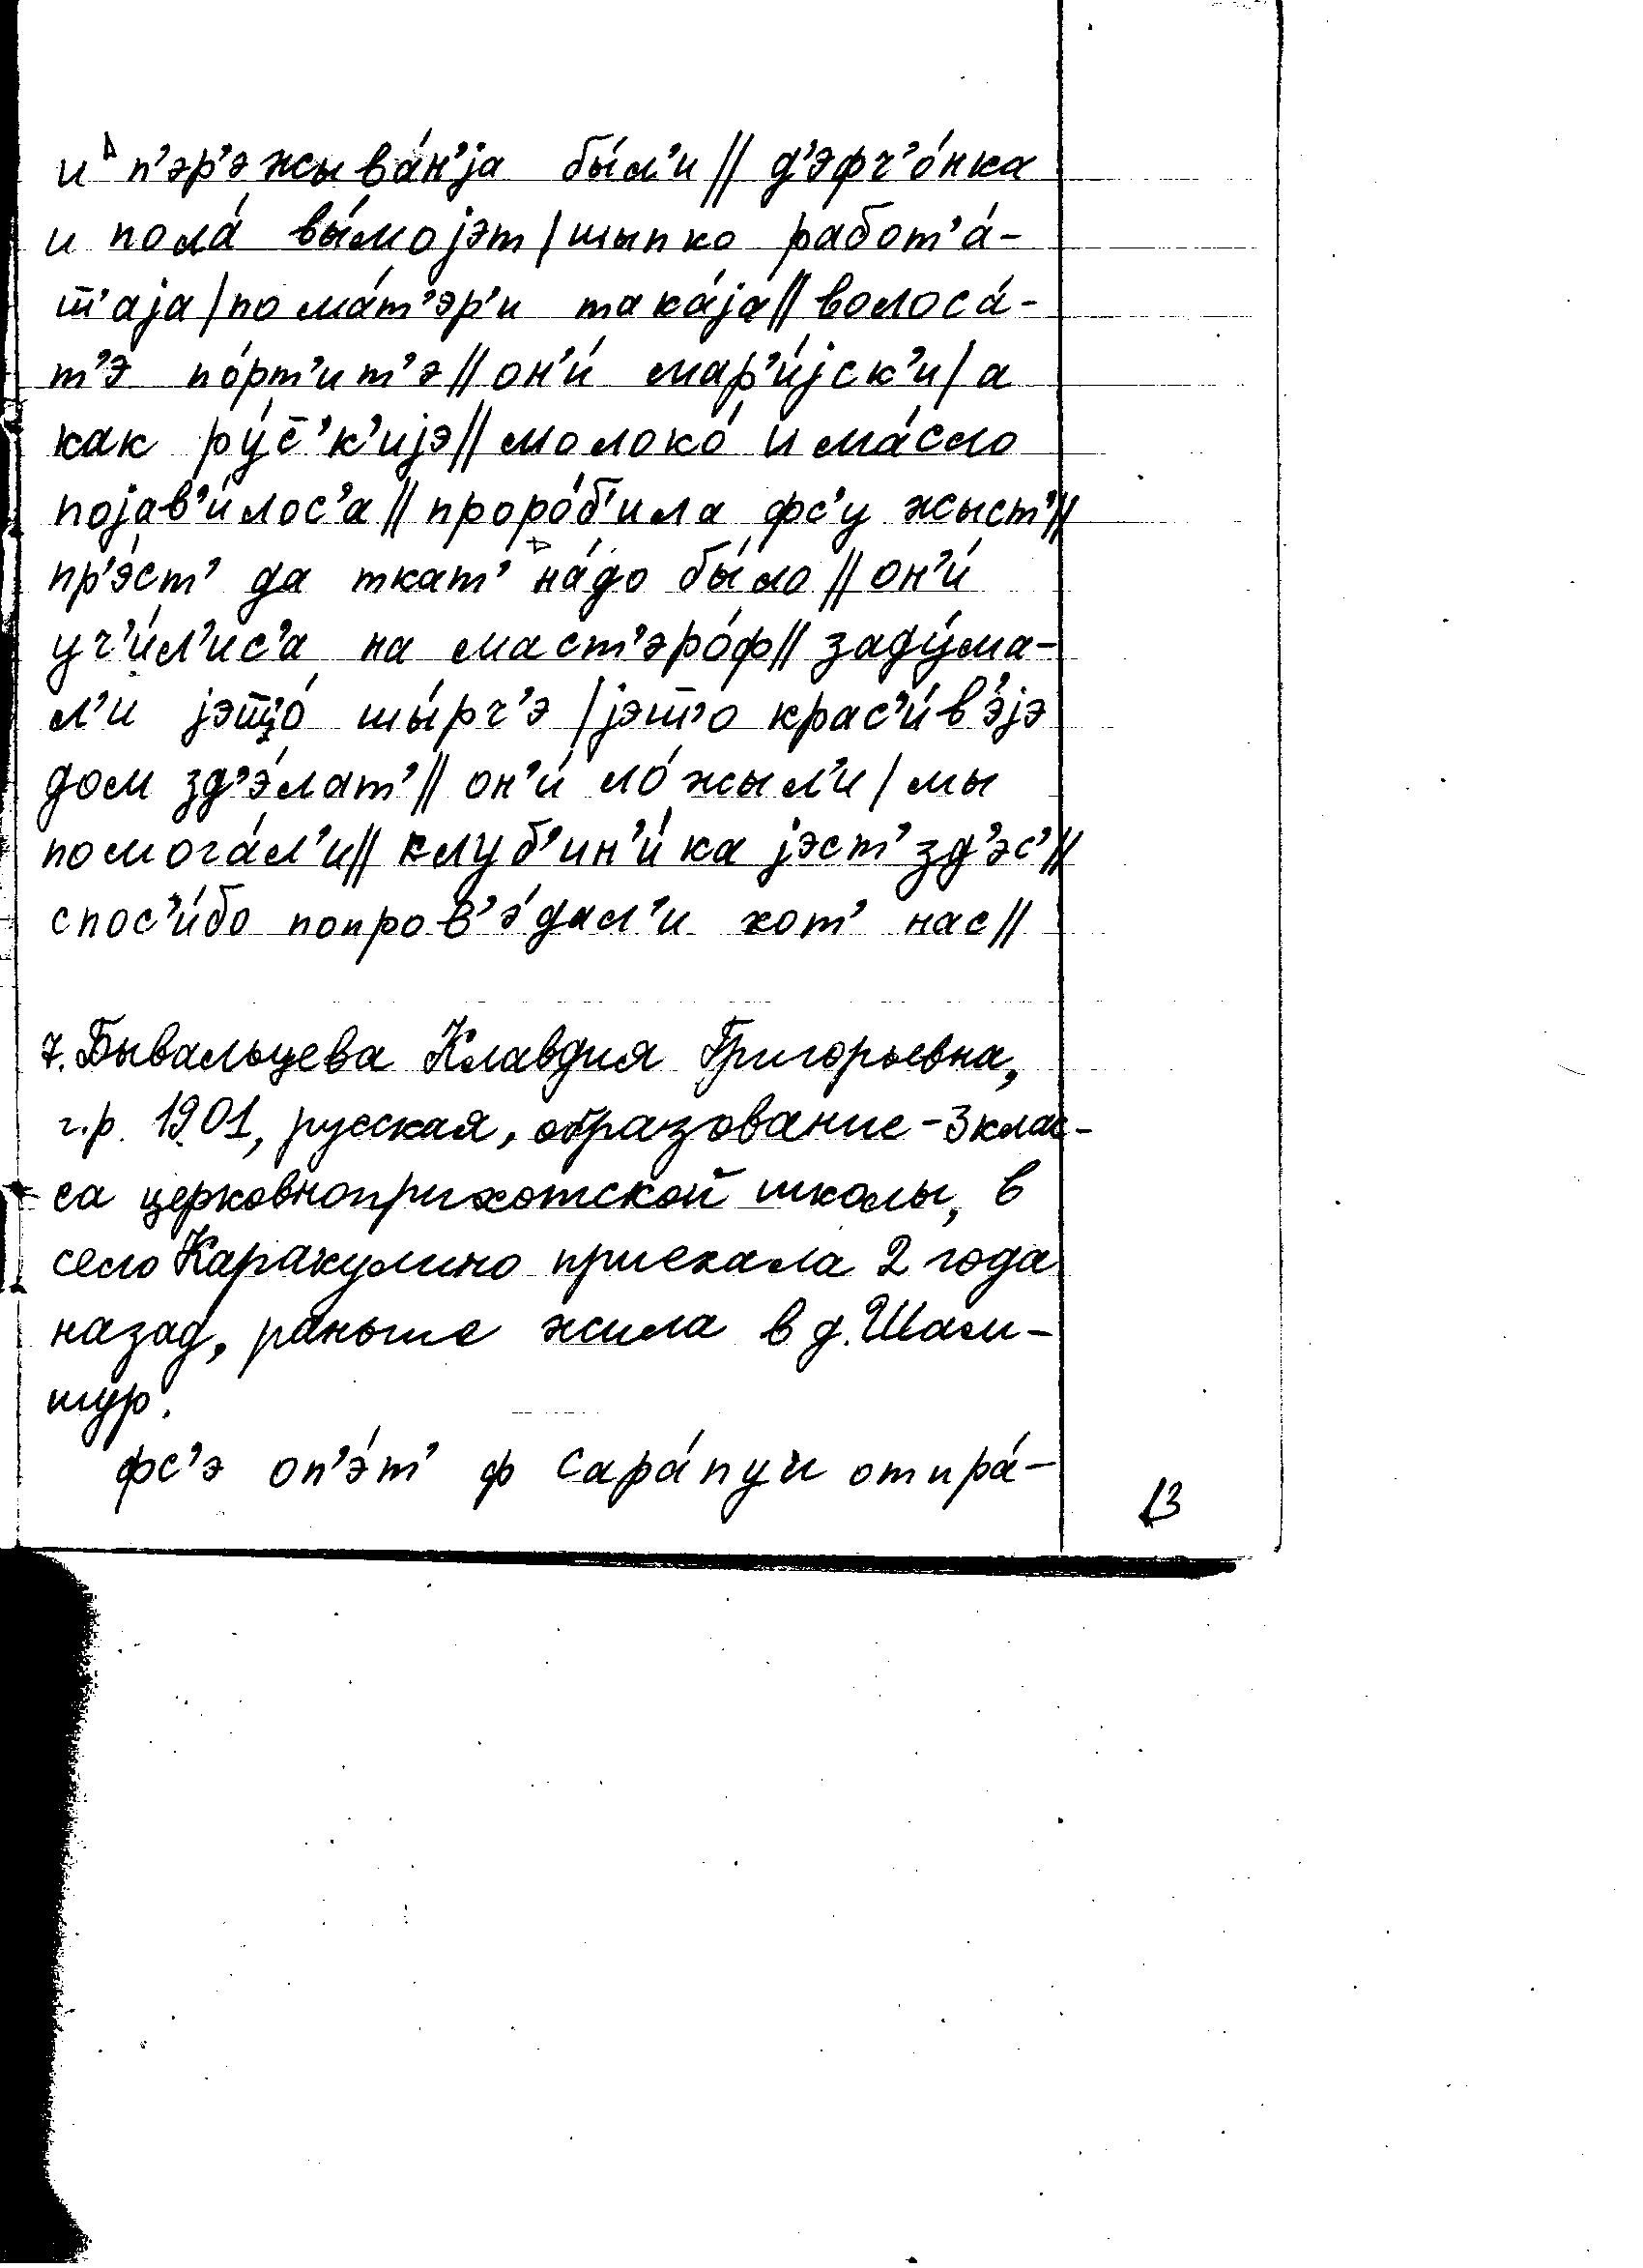 и п'эр'эжыва́н'jа бы́л'и // д'эфч'о́нка
и пола́ вы́моjэт / шыпко работ'а́-
т̅'аjа / по ма́т'эр'и така́jа // волоса́-
т'э по́рт'ит'э // он'и́ мар'и́jск'и / а
как ру́с̅'к'иjэ // молоко́ и ма́сло
поjав'и́лос'а // проро́б'ила фс'у жыст' //
пр'э́ст' да ткат' на́до бы́ло // он'и́
уч'и́л'ис'а на маст'эро́ф // заду́ма-
л'и шы́рч'э / jэт̅'о крас'и́в'эjэ
дом зд'э́лат' // он'и́ ло́жыл'и / мы
помога́л'и // клуб'ин'и́ка jэст' зд'эс' //
спос'и́бо попров'э́дал'и хот' нас //
7. Бывальцева Клавдия Григорьевна,
г.р. 1901, русская, образование - 3 клас-
са церковноприхотской школы, в
село Каракулино приехала 2 года
назад, раньше жила в д. Шам-
шур.
фс'э оп'э́т' ф сара́пул отпра́-
13